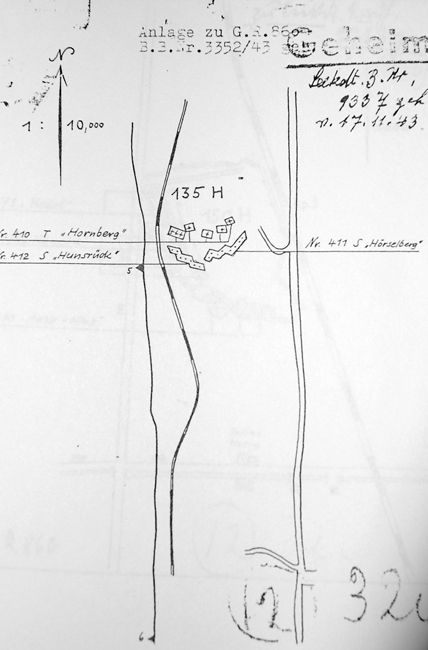 Anlage zu G.R.86
B.B.Nr.3352/43
Geheim
B. Nr,
9337
v. 17.11.43
N
1 : 10,000
135 H
Nr. 410 T „Hornberg"
Nr. 411 S „Hörselberg"
Nr. 412 S „Hunsrück"
5
6
12
32